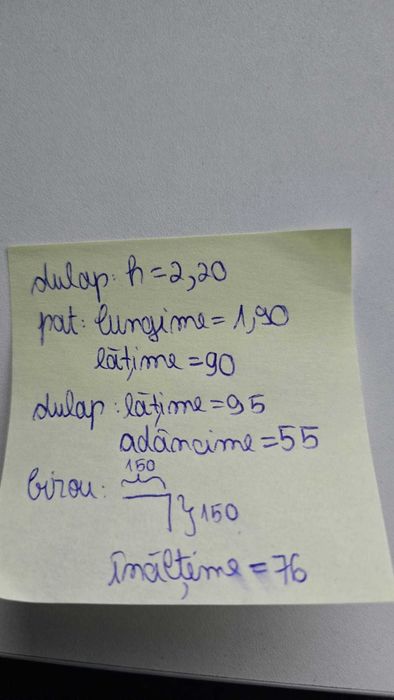 dulap: h=2,20
pat: lungime=1,90
lățime=90
dulap: lățime=95
adâncime=55
150
birou:
150
înălțime=76